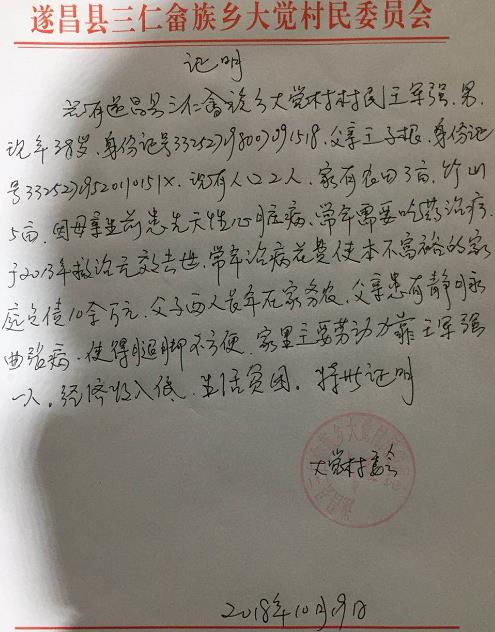 遂昌县三仁畲族乡大觉村民委员会
证明
兹有遂昌县三仁畲族乡大觉村村民王军强,男,
现年38岁,身份证号332527198007091518,父亲王子根,身份证
号33252719520110151X,现有人口2人,家有农田3亩,竹山
5亩,因母亲生前患先天性心脏病,常年需要吃药治疗,
于2013年救治无效去世,常年治病花费使本不富裕的家
庭负债10余万元,父子两人长年在家务农,父亲患有静脉
曲张病,使得腿脚不方便,家里主要劳动力靠王军强
一人。经济收入低,生活贫困。特此证明
大觉村委会
2018年10月19日